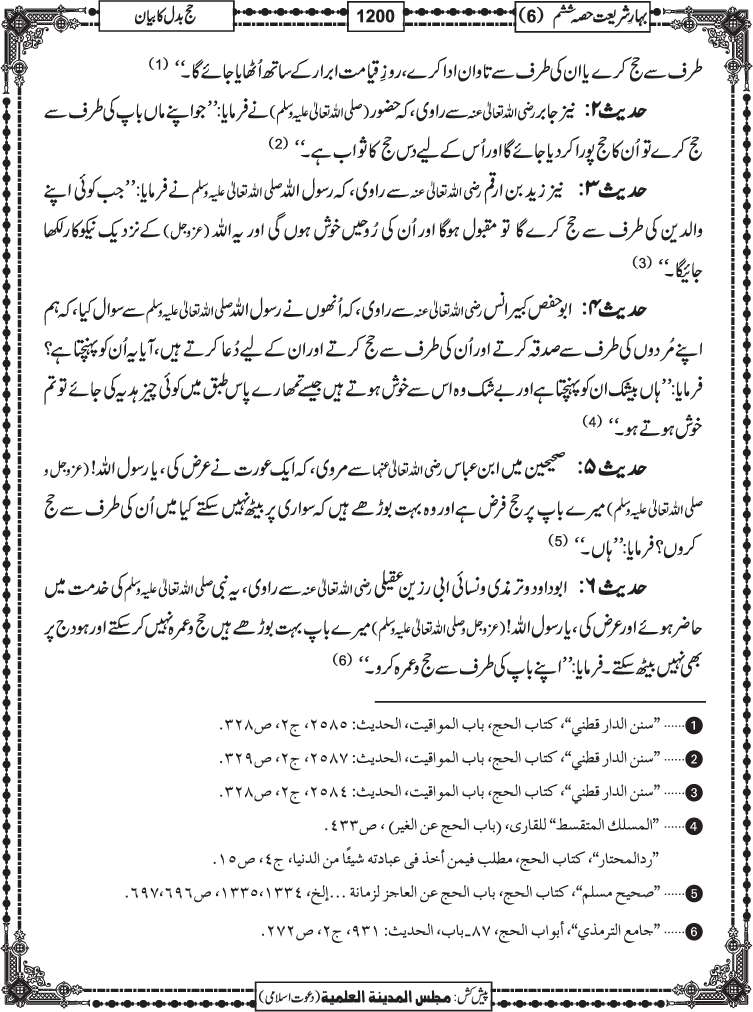 بہارِ شریعت حصہ ششم (6)
1200
حج بدل کا بیان
طرف سے حج کرے یا ان کی طرف سے تاوان ادا کرے، روزِ قیامت ابرار کے ساتھ اُٹھایا جائے گا۔‘‘ (1)
حدیث ۲: نیز جابر رضی اللہ تعالیٰ عنہ سے راوی، کہ حضور (صلی اللہ تعالیٰ علیہ وسلم) نے فرمایا: ’’جو اپنے ماں باپ کی طرف سے
حج کرے تو اُن کا حج پورا کر دیا جائے گا اور اُس کے لیے دس حج کا ثواب ہے۔‘‘ (2)
حدیث ۳: نیز زید بن ارقم رضی اللہ تعالیٰ عنہ سے راوی، کہ رسول اللہ صلی اللہ تعالیٰ علیہ وسلم نے فرمایا: ’’جب کوئی اپنے
والدین کی طرف سے حج کرے گا تو مقبول ہوگا اور اُن کی رُوحیں خوش ہوں گی اور یہ اللہ (عزوجل) کے نزدیک نیکوکار لکھا
جائیگا۔‘‘ (3)
حدیث ۴: ابوحفص کبیر انس رضی اللہ تعالیٰ عنہ سے راوی، کہ اُنھوں نے رسول اللہ صلی اللہ تعالیٰ علیہ وسلم سے سوال کیا، کہ ہم
اپنے مُردوں کی طرف سے صدقہ کرتے اور اُن کی طرف سے حج کرتے اور ان کے لیے دُعا کرتے ہیں، آیا یہ اُن کو پہنچتا ہے؟
فرمایا: ’’ہاں بیشک ان کو پہنچتا ہے اور بے شک وہ اس سے خوش ہوتے ہیں جیسے تمھارے پاس طبق میں کوئی چیز ہدیہ کی جائے تو تم
خوش ہوتے ہو۔‘‘ (4)
حدیث ۵: صحیحین میں ابن عباس رضی اللہ تعالیٰ عنہما سے مروی، کہ ایک عورت نے عرض کی، یا رسول اللہ! (عزوجل و
صلی اللہ تعالیٰ علیہ وسلم) میرے باپ پر حج فرض ہے اور وہ بہت بوڑھے ہیں کہ سواری پر بیٹھ نہیں سکتے کیا میں اُن کی طرف سے حج
کروں؟ فرمایا: ’’ہاں۔‘‘ (5)
حدیث ۶: ابوداود و ترمذی و نسائی ابی رزین عقیلی رضی اللہ تعالیٰ عنہ سے راوی، یہ نبی صلی اللہ تعالیٰ علیہ وسلم کی خدمت میں
حاضر ہوئے اور عرض کی، یا رسول اللہ! (عزوجل و صلی اللہ تعالیٰ علیہ وسلم) میرے باپ بہت بوڑھے ہیں حج و عمرہ نہیں کرسکتے اور ہودج پر
بھی نہیں بیٹھ سکتے۔ فرمایا: ’’اپنے باپ کی طرف سے حج و عمرہ کرو۔‘‘ (6)
1 ...... ”سنن الدار قطني“، كتاب الحج، باب المواقيت، الحديث: ٢٥٨٥، ج٢، ص٣٢٨.
2 ...... ”سنن الدار قطني“، كتاب الحج، باب المواقيت، الحديث: ٢٥٨٧، ج٢، ص٣٢٩.
3 ...... ”سنن الدار قطني“، كتاب الحج، باب المواقيت، الحديث: ٢٥٨٤، ج٢، ص٣٢٨.
4 ...... ”المسلك المتقسط“ للقارى، (باب الحج عن الغير) ، ص٤٣٣.
”ردالمحتار“، كتاب الحج، مطلب فيمن أخذ فى عبادته شيئًا من الدنيا، ج٤، ص١٥.
5 ...... ”صحيح مسلم“، كتاب الحج، باب الحج عن العاجز لزمانة ...إلخ، ١٣٣٤،١٣٣٥، ص٦٩٦،٦٩٧.
6 ...... ”جامع الترمذي“، أبواب الحج، ٨٧ـ باب، الحديث: ٩٣١، ج٢، ص٢٧٢.
پیش کش: مجلس المدینة العلمیة (دعوت اسلامی)